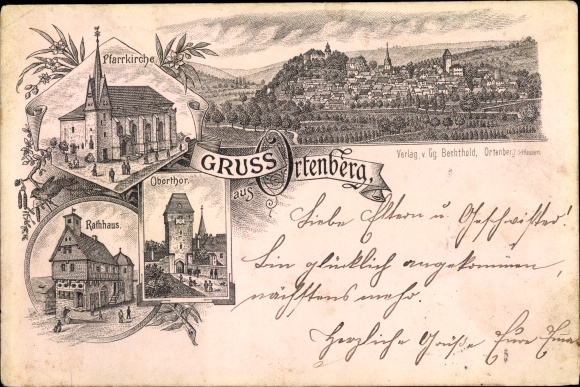 Pfarrkirche
GRUSS
aus
Ortenberg,
Verlag v. Gg. Bechthold, Ortenberg i. Hessen
Oberthor.
Rathhaus.
Liebe Eltern u. Geschwister!
Bin glücklich angekommen,
nächstens mehr.
Herzliche Grüße Eure Emma